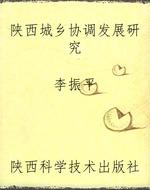 陕西城乡协调发展研
究
李振平
陕西科学技术出版社